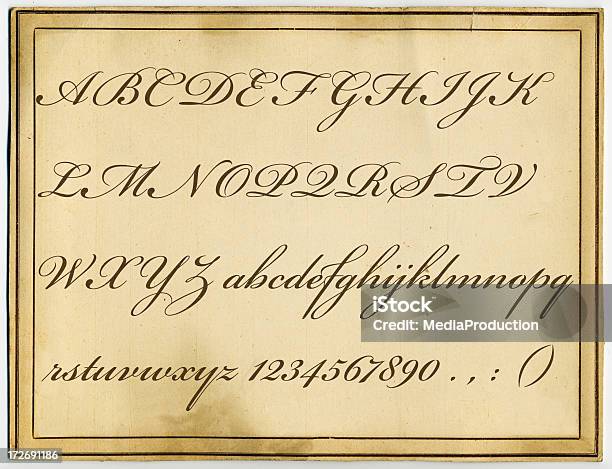 ABCDEFGHIJK
LMNOPQRSTV
WXYZ abcdefghijklmnopq
rstuvwxyz 1234567890 . , : ()
iStock
Credit: MediaProduction
172691186